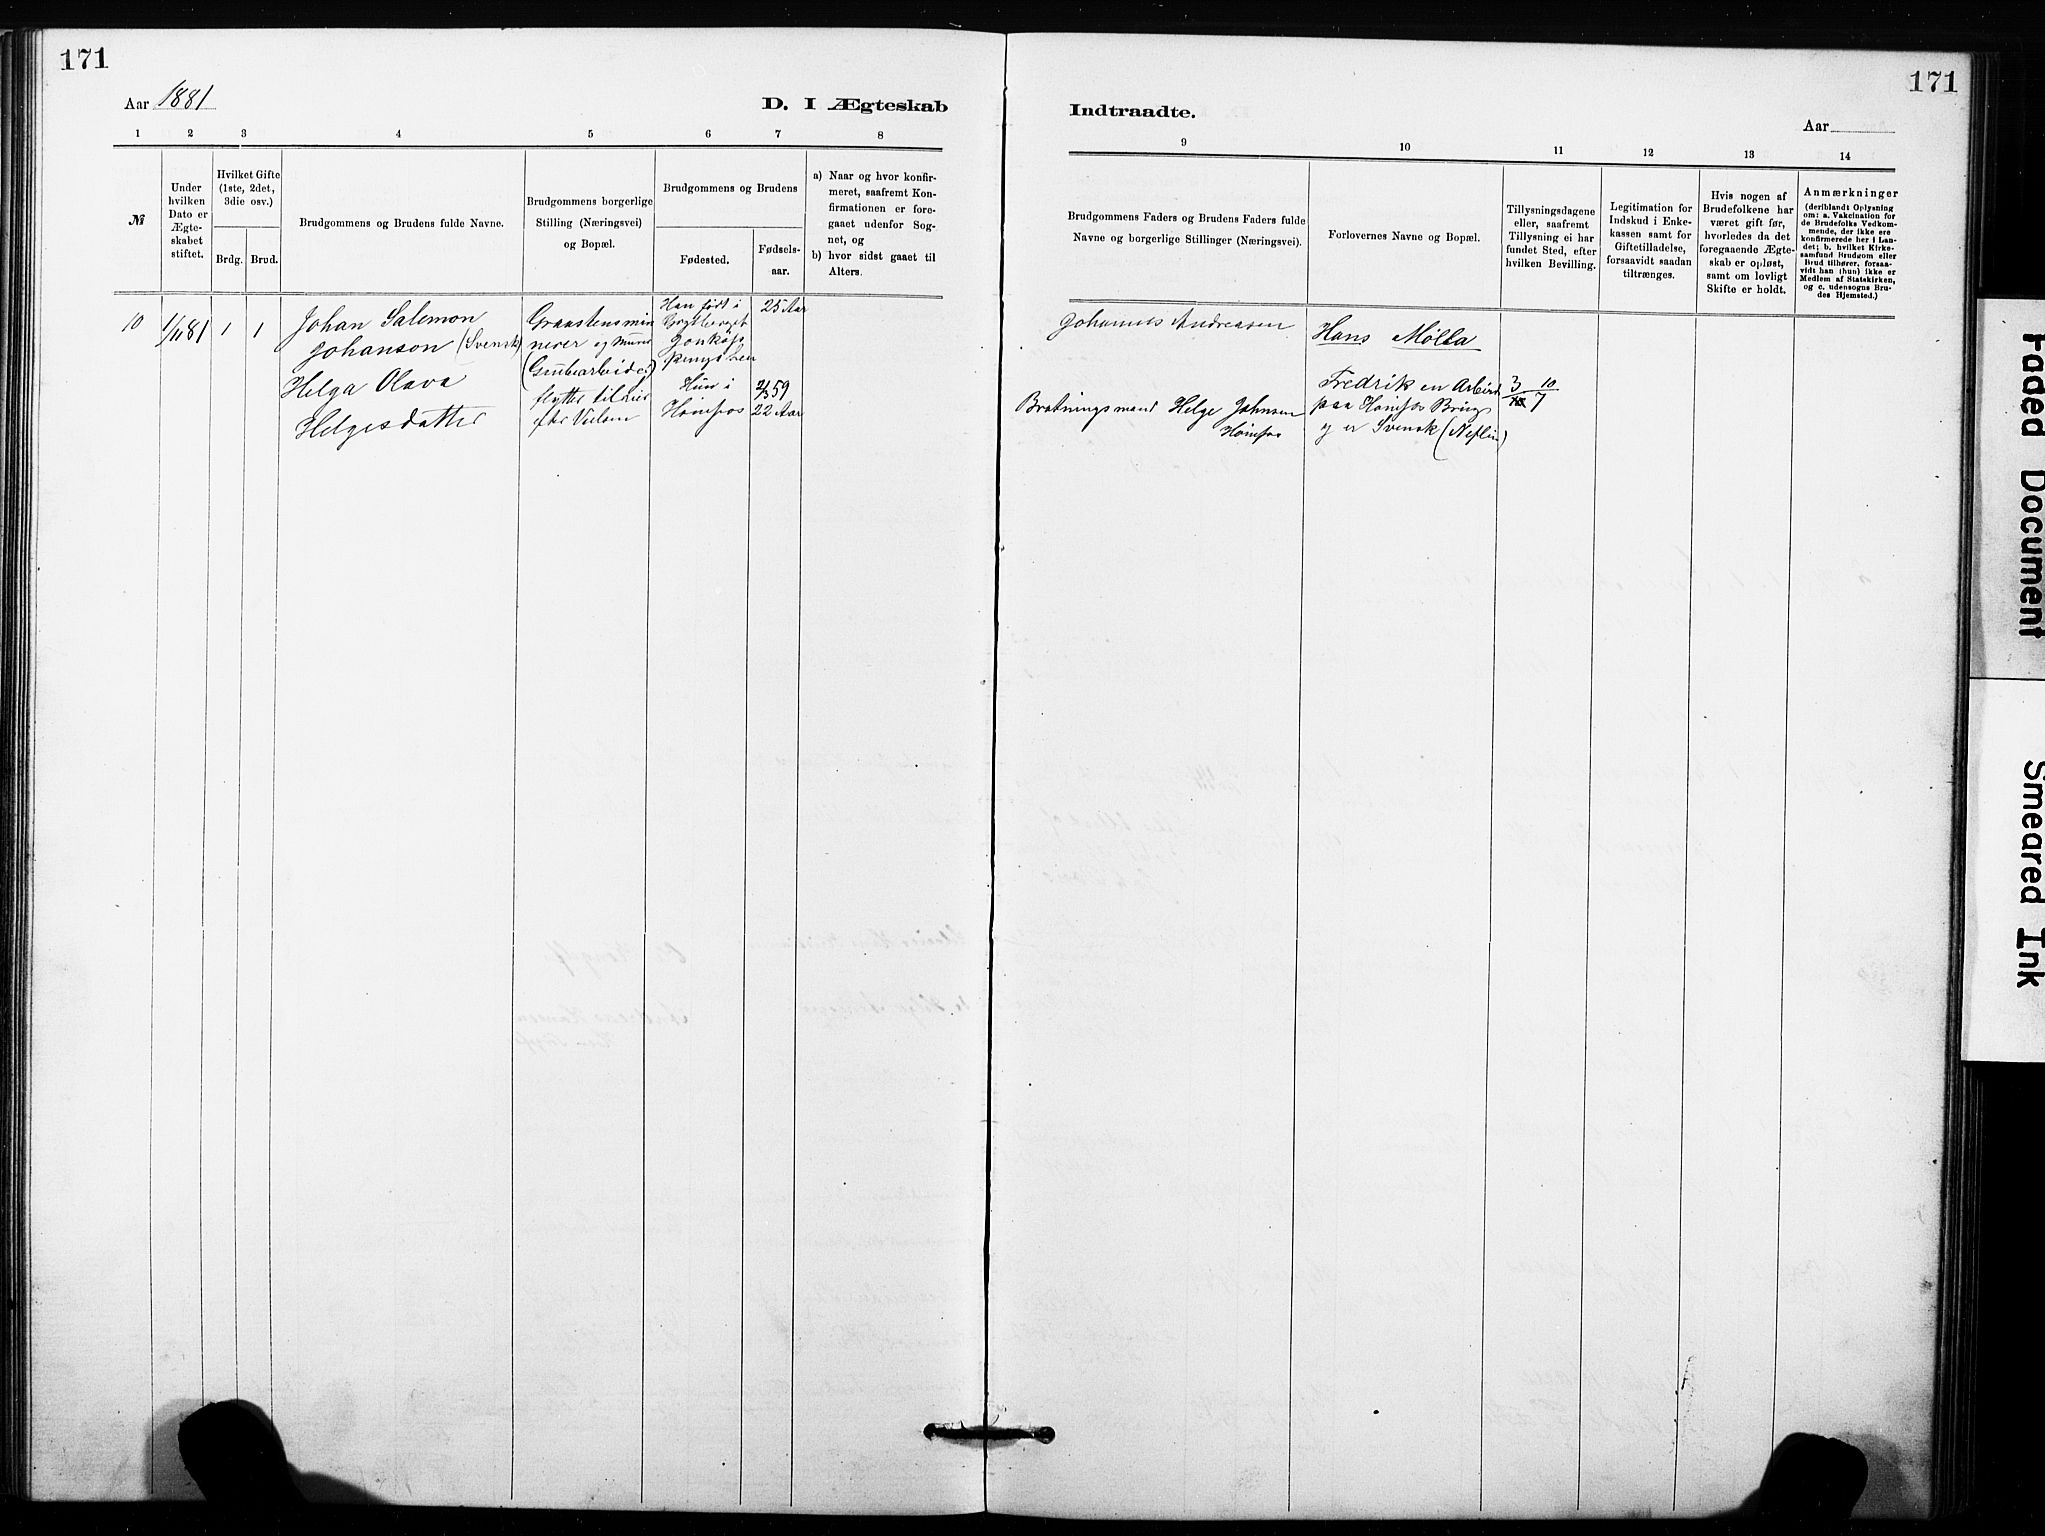 171
171
Aar 1881
D. I Ægteskab
Indtraadte.
Aar
1 2 3 4 5 6 7 8
9 10 11 12 13 14
№
Under
hvilken
Dato er
Ægte-
skabet
stiftet.
Hvilket Gifte
(1ste, 2det,
3die osv.)
Brdg. Brud.
Brudgommens og Brudens fulde Navne.
Brudgommens borgerlige
Stilling (Næringsvei)
og Bopæl.
Brudgommens og Brudens
Fødested.
Fødsels-
aar.
a) Naar og hvor konfir-
meret, saafremt Kon-
firmationen er fore-
gaaet udenfor Sog-
net, og
b) hvor sidst gaaet til
Alters.
Brudgommens Faders og Brudens Faders fulde
Navne og borgerlige Stillinger (Næringsvei).
Forlovernes Navne og Bopæl.
Tillysningsdagene
eller, saafremt
Tillysning ei har
fundet Sted, efter
hvilken Bevilling.
Legitimation for
Indskud i Enke-
kassen samt for
Giftetilladelse,
forsaavidt saadan
tiltrænges.
Hvis nogen af
Brudefolkene har
været gift før,
hvorledes da det
foregaaende Ægte-
skab er opløst,
samt om lovligt
Skifte er holdt.
Anmærkninger
(deriblandt Oplysning
om: a. Vakcination for
de Brudefolks Vedkom-
mende, der ikke ere
konfirmerede her i Lan-
det; b. hvilket Kirke-
samfund Brudgom eller
Brud tilhører, forsaa-
vidt han (hun) ikke er
Medlem af Statskirken,
og c. udensogns Bru-
des Hjemsted.)
10 1/11 81 1 1
Johan Salemon
Johanson (Svensk)
Helga Olava
Helgesdatter
Graastensmin
nerer og Murer
(Grubearbeider)
flytter til
Han født i
Hun i
Hønefos
25 Aar
2/3 59
22 Aar
Johannes Andreasen
Brotningsmand Helge Johnsen
Hønefos
Hans Molla
Fredrik en Arbeid
paa Hønefos Brug
og er Svensk
3 10
7
Faded Document
Smeared Ink